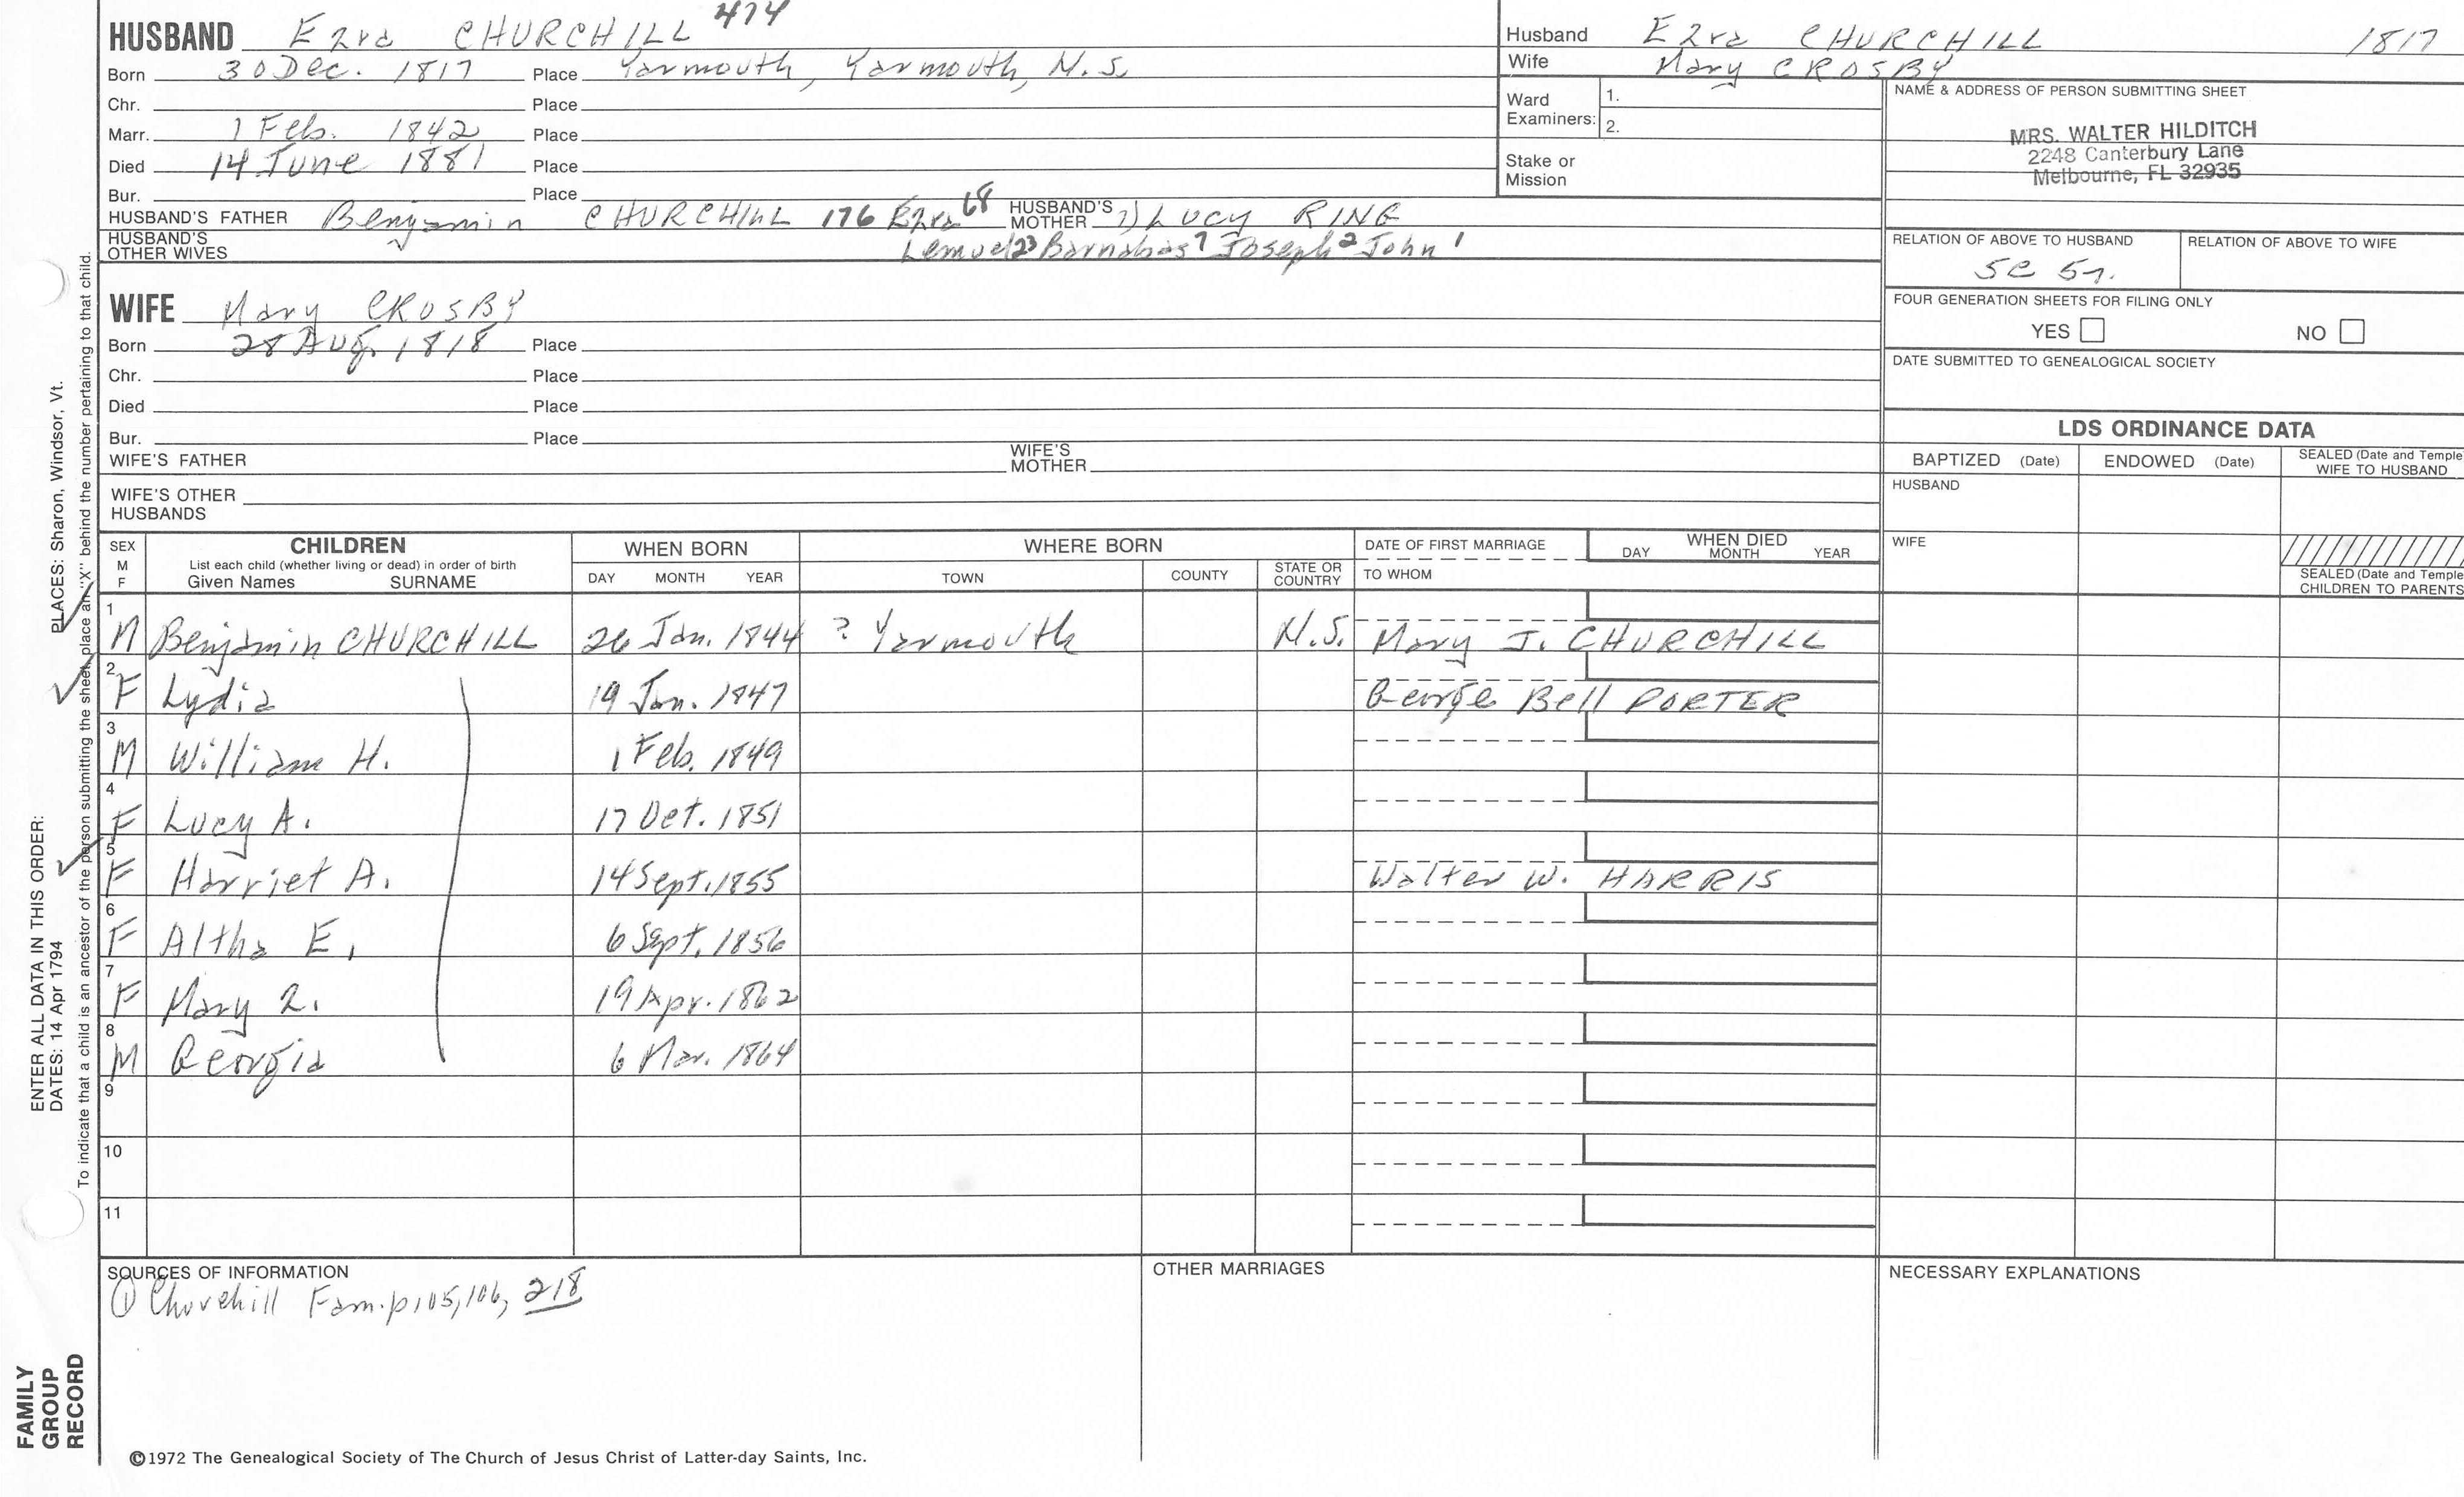 HUSBAND Ezra CHURCHILL 474
Born 30 Dec. 1817 Place Yarmouth, Yarmouth, N.S.
Chr. Place
Marr. 1 Feb. 1842 Place
Died 14 June 1881 Place
Bur. Place
HUSBAND'S FATHER Benjamin CHURCHILL 176 Ezra 68 HUSBAND'S MOTHER 1) LUCY RING
HUSBAND'S OTHER WIVES Lemuel 23 Barnabas 7 Joseph 2 John 1
WIFE Mary CROSBY
Born 28 Aug. 1818 Place
Chr. Place
Died Place
Bur. Place
WIFE'S FATHER WIFE'S MOTHER
WIFE'S OTHER HUSBANDS
Husband Ezra CHURCHILL 1817
Wife Mary CROSBY
Ward Examiners: 1.
2.
Stake or Mission
NAME & ADDRESS OF PERSON SUBMITTING SHEET
MRS. WALTER HILDITCH
2248 Canterbury Lane
Melbourne, FL 32935
RELATION OF ABOVE TO HUSBAND RELATION OF ABOVE TO WIFE
FOUR GENERATION SHEETS FOR FILING ONLY
YES NO
DATE SUBMITTED TO GENEALOGICAL SOCIETY
LDS ORDINANCE DATA
BAPTIZED (Date) ENDOWED (Date) SEALED (Date and Temple WIFE TO HUSBAND
HUSBAND
WIFE
SEALED (Date and Temple
CHILDREN TO PARENTS
SEX M F CHILDREN WHEN BORN WHERE BORN DATE OF FIRST MARRIAGE WHEN DIED
List each child (whether living or dead) in order of birth DAY MONTH YEAR
Given Names SURNAME DAY MONTH YEAR TOWN COUNTY STATE OR COUNTRY TO WHOM
1 M Benjamin CHURCHILL 26 Jan. 1844 ? Yarmouth N.S. Mary J. CHURCHILL
2 F Lydia 19 Jan. 1847 George Bell PORTER
3 M William H. 1 Feb. 1849
4 F Lucy A. 17 Oct. 1851
5 F Harriet A. 14 Sept. 1855 Walter W. HARRIS
6 F Altha E. 6 Sept. 1856
7 F Mary 19 Apr. 1862
8 M Georgia 6 Mar. 1864
9
10
11
SOURCES OF INFORMATION
① Churchill Fam. p 105, 106, 218
OTHER MARRIAGES
NECESSARY EXPLANATIONS
©1972 The Genealogical Society of The Church of Jesus Christ of Latter-day Saints, Inc.
FAMILY
GROUP
RECORD
ENTER ALL DATA IN THIS ORDER:
DATES: 14 Apr 1794 PLACES: Sharon, Windsor, Vt.
To indicate that a child is an ancestor of the person submitting the sheet, place an "X" behind the number pertaining to that child.